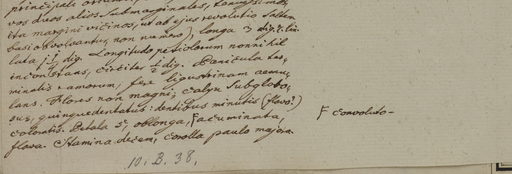 principali
vos duos alios submarginales,
ita margini vicinos, ut ab ejus revolutio
basi obvolvantur, non raro), longa 3 dig. 7 lin.
lata 1 1/4 dig. Longitudo petiolorum nonnihil
inconstans, circiter 1/2 dig. Panicula ter-
minalis ramorum, fere ligustrinam aemu-
lans. Flores non magni; calyx subglobo-
sus, quinquedentatus: dentibus minutis (flavo?)
coloratis. Petala 5, oblonga, F acuminata,
flava. Stamina decem, corolla paulo majora.
F convoluto-
10. B. 38.